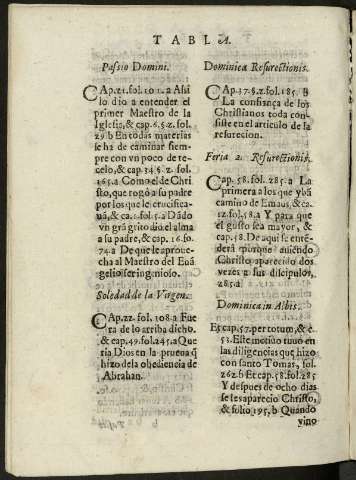 TABLA.
Passio Domini.
CAp.21. fol. 101. a Asi
lo dio a entender el
primer Maestro de la
Iglesia, & cap. 6. §. 2. fol.
29. b En todas materias
se hã de caminar siempre
con vn poco de recelo,
& cap 34. §. 2. fol.
165. a Como el de Christo,
que rogó a su padre
por los que le crucificauã,
& ca. 1. fol. 5. a Dãdo
vn grã grito dio el alma
a su padre, & cap. 16. fo.
74. a De que le aprouecha
al Maestro del Euãgelio
ser ingenioso.
Soledad de la Virgen.
CAp. 22. fol. 108. a Fuera
de lo arriba dicho.
& cap. 49. fol. 245. a Queria
Dios en la prueua q̃
hizo de la obediencia de
Abrahan.
Dominica Resurectionis.
CAp. 37. §. 2. fol. 185. B
La confiança de los
Christianos toda consiste
en el articulo de la
resurecion.
Feria 2. Resurectionis.
CAp. 58. fol. 285. a La
primera a los que ybã
camino de Emaus, & ca.
12. fol. 58. a Y para que
el gusto sea mayor, &
cap. 58. De aqui se entenderá
porque auiendo
Christo aparecido dos
vezes a sus discipulos,
285. a
Dominica in Albis.
Et cap. 57. per totum, & c.
53. Este motiuo tuuo en
las diligencias que hizo
con santo Tomas, fol.
262. b Et cap. 58. fol. 285
Y despues de ocho dias
se les aparecio Christo,
& folio 195. b Quando
b
vino